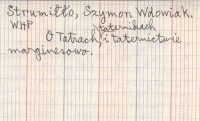 Strumiłło, Szymon Wdowiak.
WHP
taternikach
O Tatrach, i taternictwie
marginesowo.